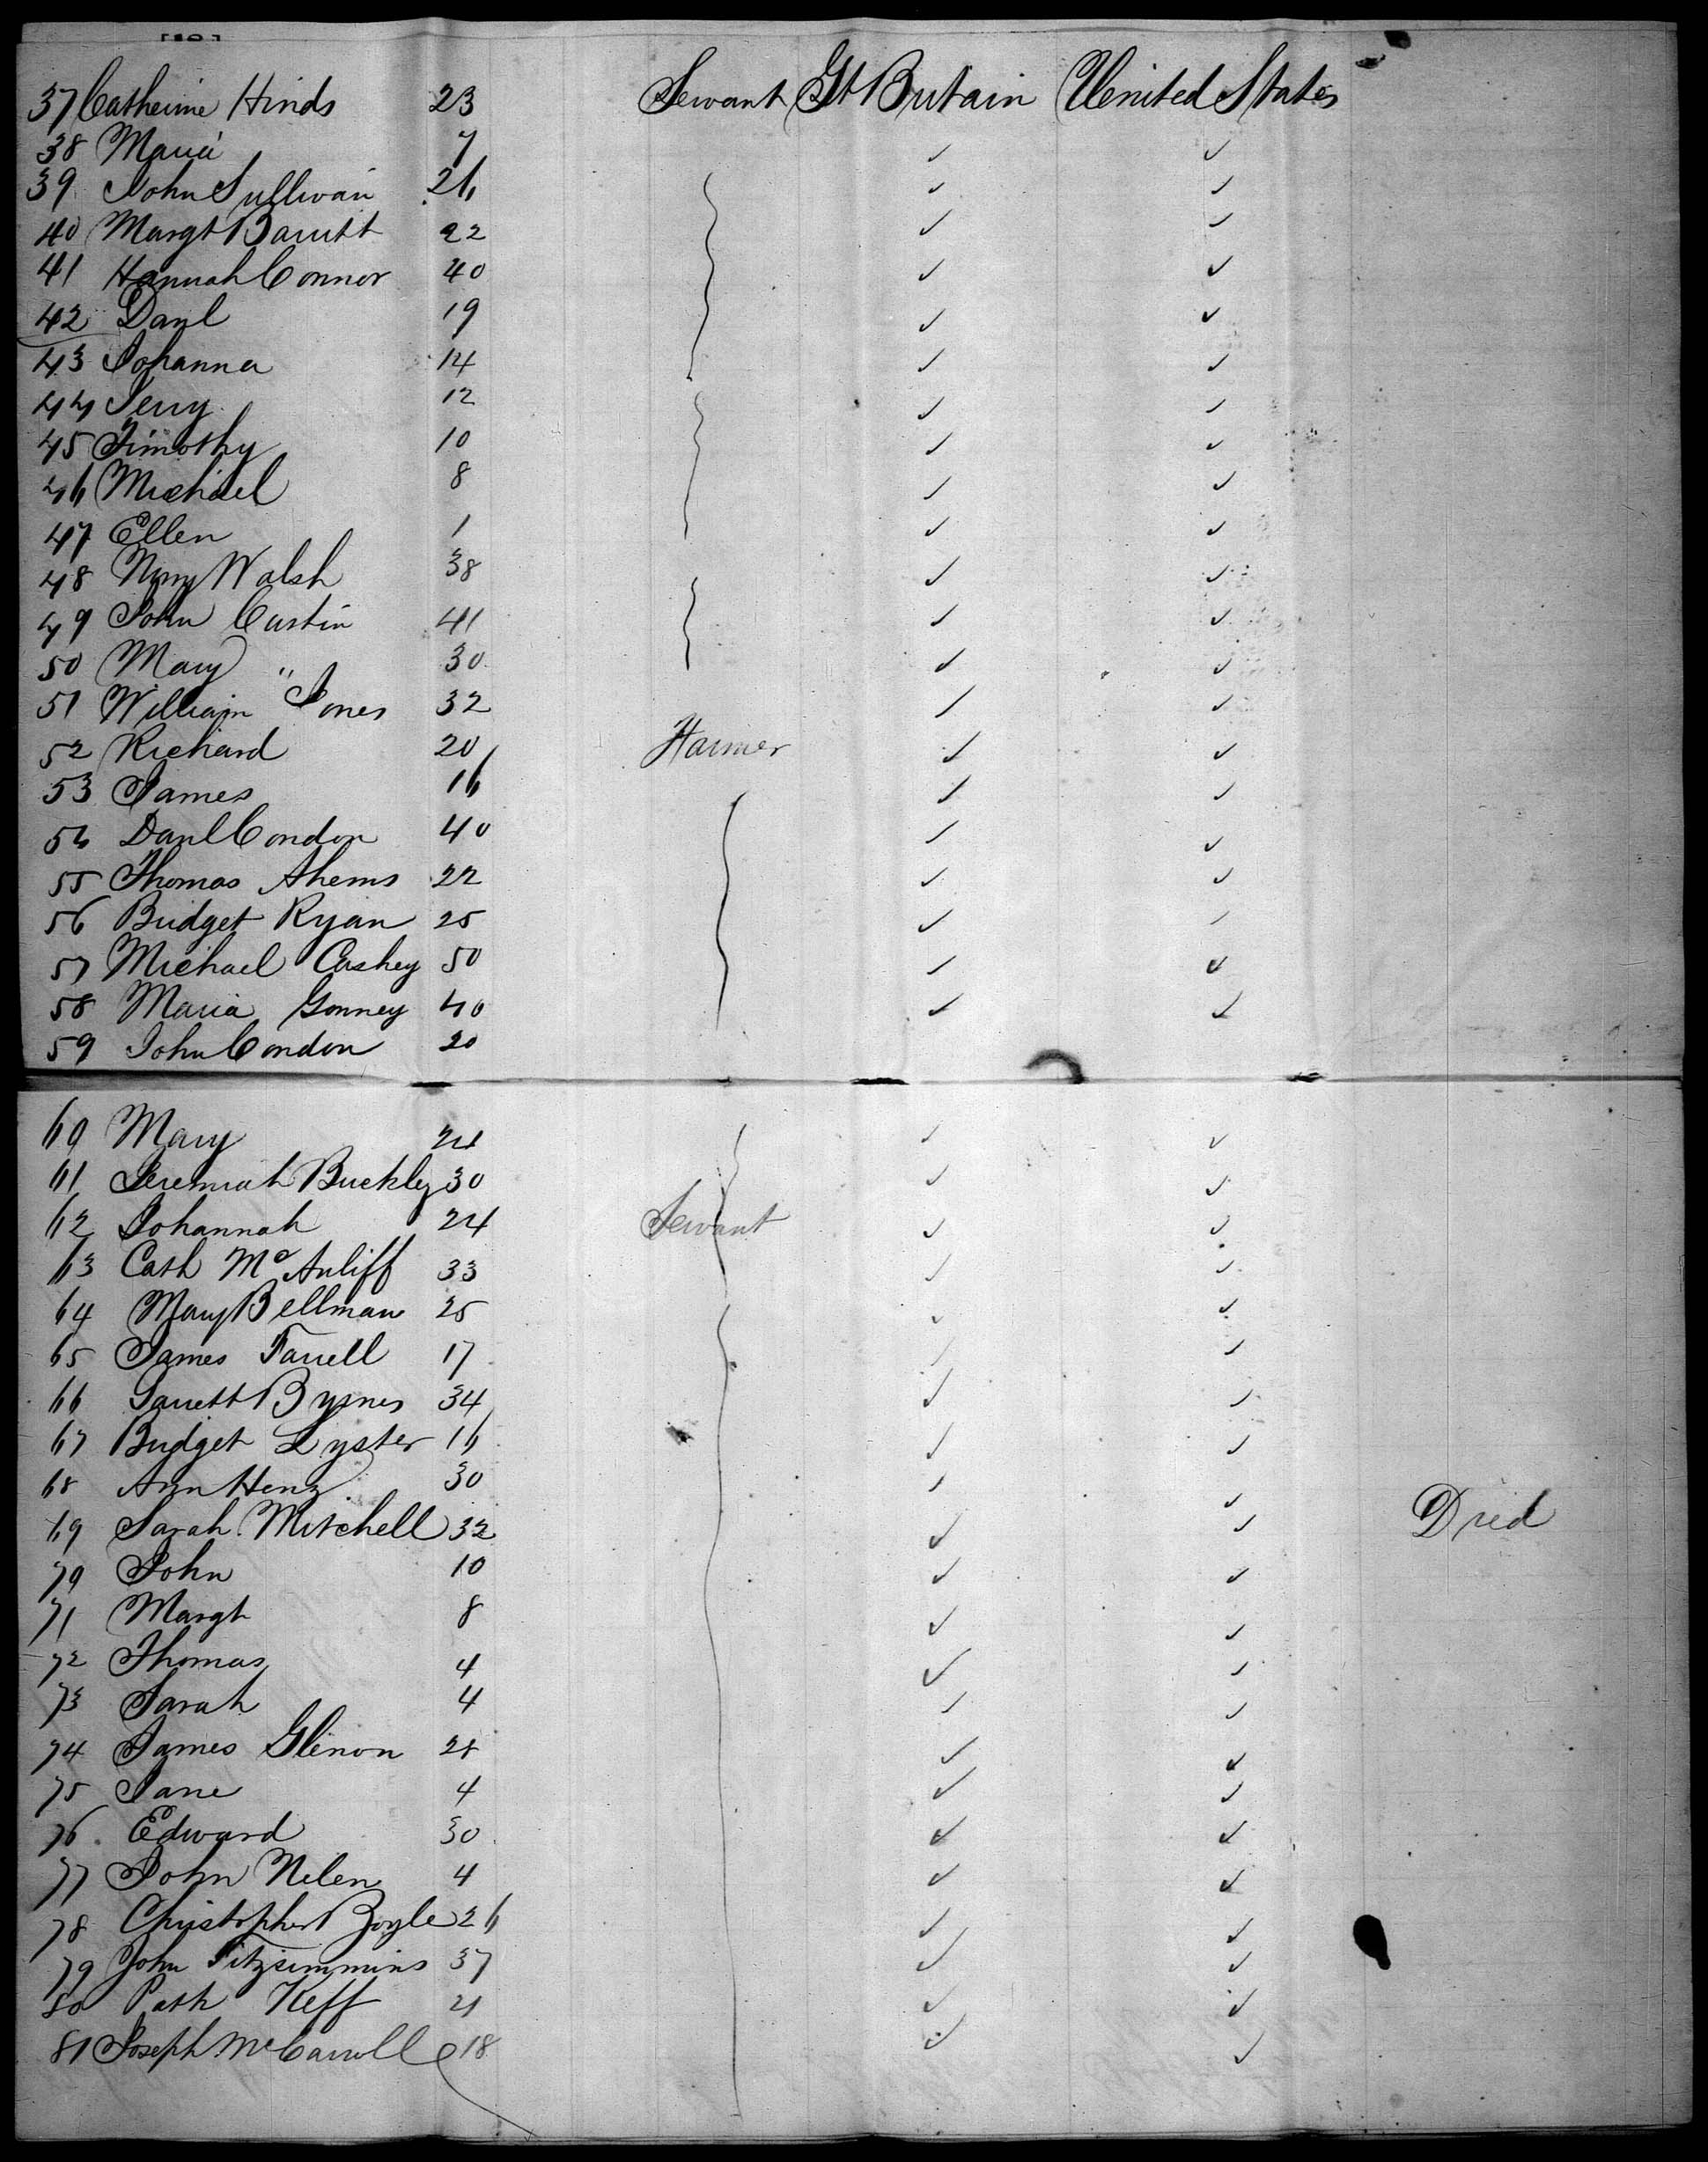 37 Catherine Hinds 23 Servant Gt Britain United States
38 Maria 7 ✓ ✓
39 John Sullivan 26 ✓ ✓
40 Margt Barrett 22 ✓ ✓
41 Hannah Connor 40 ✓ ✓
42 Danl 19 ✓ ✓
43 Johanna 14 ✓ ✓
44 Jerry 12 ✓ ✓
45 Timothy 10 ✓ ✓
46 Michael 8 ✓ ✓
47 Ellen 1 ✓ ✓
48 Mary Walsh 38 ✓ ✓
49 John Custin 41 ✓ ✓
50 Mary " 30 ✓ ✓
51 William Jones 32 ✓ ✓
52 Richard 20 Farmer ✓ ✓
53 James 16 ✓ ✓
54 Danl Condon 40 ✓ ✓
55 Thomas Aherns 22 ✓ ✓
56 Bridget Ryan 25 ✓ ✓
57 Michael Cashey 50 ✓ ✓
58 Maria Gonney 40 ✓ ✓
59 John Condon 20
60 Mary 24 ✓ ✓
61 Jeremiah Buckley 30 ✓ ✓
62 Johannah 24 Servant ✓ ✓
63 Cath Mc Auliff 33 ✓ ✓
64 Mary Bellman 25 ✓ ✓
65 James Farrell 17 ✓ ✓
66 Garrett Byrnes 34 ✓ ✓
67 Bridget Lyster 16 ✓ ✓
68 Ann Heny 30 ✓ ✓
69 Sarah Mitchell 32 ✓ ✓ Died
70 John 10 ✓ ✓
71 Margt 8 ✓ ✓
72 Thomas 4 ✓ ✓
73 Sarah 4 ✓ ✓
74 James Glinon 28 ✓ ✓
75 Jane 4 ✓ ✓
76 Edward 30 ✓ ✓
77 John Nelen 4 ✓ ✓
78 Christopher Boyle 26 ✓ ✓
79 John Fitzsimmins 37 ✓ ✓
80 Path Keff 21 ✓ ✓
81 Joseph McCarroll 18 ✓ ✓